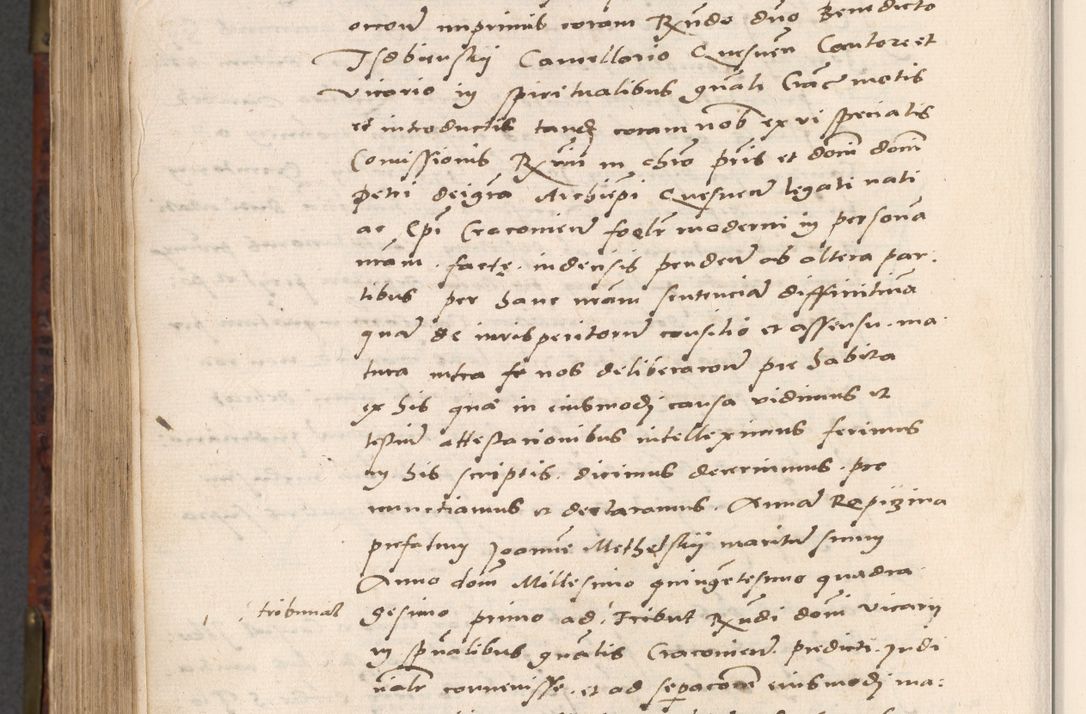 orcorum imprimis coram Rndo dno Benedicto
Isdbienskij Cancellario Gnesnen Cantore et
vicario in spiritualibus gnali Crac motis
et introductis tandem coram nob ex vi specialis
Comissionis Rmi in chro pris et domi domi
petri dei gra Archiepi Gnesnen legati nati
ac Epi Cracovien foelr moderni in persona
nram factę indecisis penden ab altera par
tibus per hanc nram sentenciam diffinitiva
quam de iurisperitorum consilio et assensu ma
tura intra nos deliberacione pre habita
ex his quae in eiusmodj causa vidimus et
testium attestacionibus intelleximus ferimus
in his scriptis dicimus decernimus pro
nunctiamus et declaramus Annam Rapizina
prefatum Joannem Methelskij maritum suum
Anno domi Millesimo quingetesimo quadra
tribunal gesimo primo ad Tribut Rndi domi vicarij
in spualibus gnalis Cracovien predicti Judi
cialr convenisse et ad separacionem eiusmodj ma: